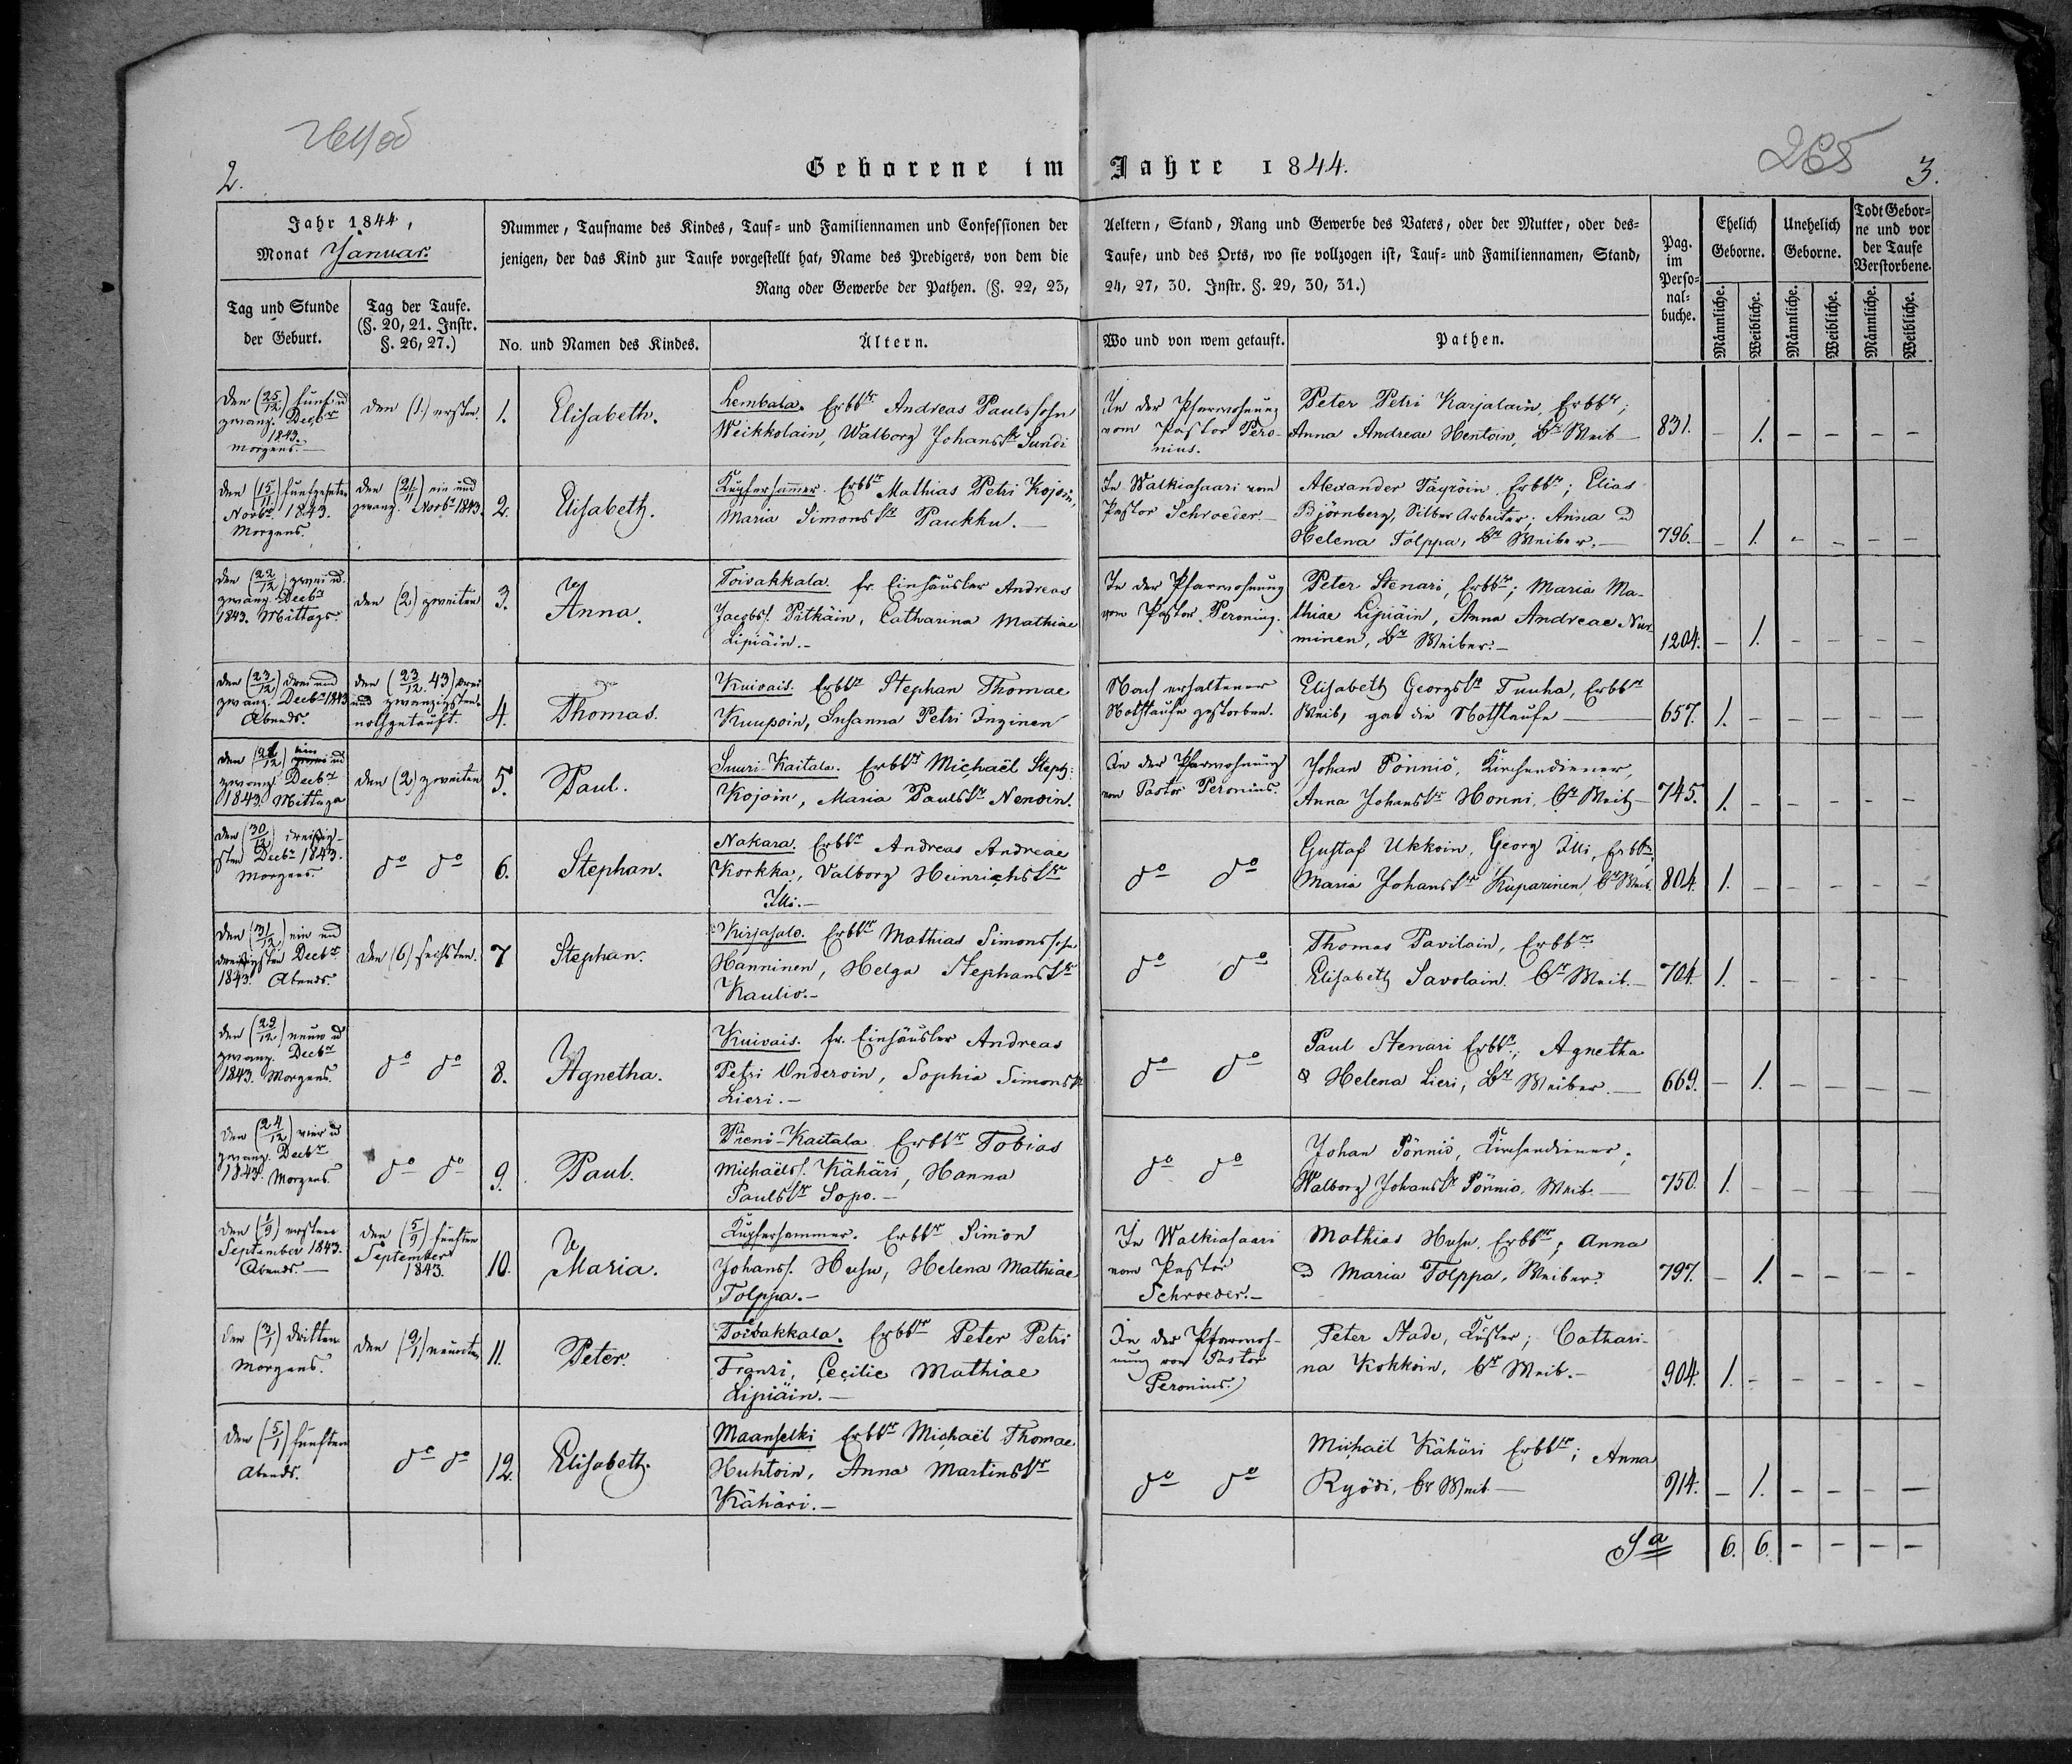 2.
265
3.
Geborene im Jahre 1844.
Jahr 1844,
Monat Januar.
Nummer, Taufname des Kindes, Tauf- und Familiennamen und Confessionen der
jenigen, der das Kind zur Taufe vorgestellt hat, Name des Predigers, von dem die
Rang oder Gewerbe der Pathen. (§. 22, 23,
Aeltern, Stand, Rang und Gewerbe des Vaters, oder der Mutter, oder des-
Taufe, und des Orts, wo sie vollzogen ist, Tauf- und Familiennamen, Stand,
24, 27, 30. Instr. §. 29, 30, 31.)
Pag.
im
Perso-
nal-
buche.
Ehelich
Geborne.
Unehelich
Geborne.
Todt Gebor-
ne und vor
der Taufe
Verstorbene.
Tag und Stunde
der Geburt.
Tag der Taufe.
(§. 20, 21. Instr.
§. 26, 27.)
No. und Namen des Kindes.
Ältern.
Wo und von wem getauft.
Pathen.
Männliche.
Weibliche.
Männliche.
Weibliche.
Männliche.
Weibliche.
den (25/12) fünf ud
zwanz. Decbr
1843.
Morgens. —
den (1.) ersten.
1.
Elisabeth.
Lembala. Erbbr Andreas Paulssohn
Weikkolain, Walborg Johanstr Sundi
In der Pfarrwohnung
vom Pastor Pero-
nius.
Peter Petri Karjalain, Erbbr;
Anna Andreae Hentoin, Br Weib —
831.
1. – – – –
den (15/11) funfzehnten
Novbr. 1843.
Morgens.
den (21/11) ein und
zwanz. Novbr 1843.
2.
Elisabeth.
Kupferhammer. Erbbr Mathias Petri Kojoin,
Maria Simonstr Paukku. —
In Walkiasaari vom
Pastor Schroeder. —
Alexander Täyröin, Erbbr; Elias
Björnberg, Silber Arbeiter; Anna ud
Helena Tolppa, Br Weiber. —
796.
– 1. – – – –
den (22/12) zwei ud
zwanz. Decbr
1843. Mittags.
den (2) zweiten
3.
Anna.
Toivakkala. fr. Einhäusler Andreas
Jacobss. Pitkäin, Catharina Mathiae
Lipiäin. –
In der Pfarrwohnung
vom Pastor Peronius.
Peter Stenari, Erbbr; Maria Ma-
thiae Lipiäin, Anna Andreae Nur-
minen, Br Weiber. –
1204.
– 1. – – – –
den (23/12) drei und
zwanz. Decbr 1843
Abends.
den (23/12 43) drei
und zwanzigsten
nothgetauft.
4.
Thomas.
Kuivais. Erbbr Stephan Thomae
Kuupoin, Susanna Petri Inginen
Nach erhaltener
Nothtaufe gestorben.
Elisabeth Georgstr Tuuha, Erbbr
Weib, gab die Nothtaufe —
657.
1. – – – – –
den (21/12) ein ud
zwanz. Decbr
1843. Mittags
den (2) zweiten
5.
Paul.
Suuri-Kaitala. Erbbr Michaël Steph:
Kojoin, Maria Paulstr Nenoin.
In der Pfarrwohnung
vom Pastor Peronius.
Johan Pönniö, Kirchendiener,
Anna Johanstr Honni, Br Weib —
745.
1. – – – – –
den (30/12) dreißig-
sten Decbr 1843.
Morgens.
do do
6.
Stephan.
Nakara. Erbbr Andreas Andreae
Korkka, Valborg Heinrichstr
Illi. —
do do
Gustaf Ukkoin, Georg Illi, Erbbr,
Maria Johanstr Kuparinen, Br Weib.
804.
1. – – – – –
den (31/12) ein und
dreißigsten Decbr
1843. Abends.
den (6) sechsten.
7
Stephan.
Kirjasalo. Erbbr Mathias Simonssohn
Hänninen, Helga Stephanstr
Kaulio. –
do do
Thomas Pavilain, Erbbr
Elisabeth Savolain. Br Weib. —
704.
1. – – – – –
den (29/12) neun ud
zwanz. Decbr
1843. Morgens.
do do
8.
Agnetha.
Kuivais. fr. Einhäusler Andreas
Petri Onderoin, Sophia Simonstr
Lieri. —
do do
Paul Stenari Erbbr; Agnetha
& Helena Lieri, Br Weiber. —
669.
– 1. – – – –
den (24/12) vier ud
zwanz. Decbr
1843. Morgens.
do do
9.
Paul.
Pieni-Kaitala. Erbbr Tobias
Michaëls. Kähäri, Hanna
Paulstr Sopo. —
do do
Johan Pönniö, Kirchendiener,
Walborg Johanstr Pönniö, Weib. —
750.
1. – – – – –
den (1/9) ersten
September 1843.
Abends. —
den (5/9) fünften
September
1843.
10.
Maria.
Kupferhammer. Erbbr Simon
Johanss. Husu, Helena Mathiae
Tolppa. –
In Walkiasaari
vom Pastor
Schroeder. –
Mathias Husu, Erbbr; Anna
ud Maria Tolppa, Weiber.
797.
– 1. – – – –
den (3/1) dritten
Morgens.
den (9/1) neunten
11.
Peter.
Toivakkala. Erbbr Peter Petri
Franzi, Cecilie Mathiae
Lipiäin. —
In der Pfarrwoh-
nung vom Pastor
Peronius.
Peter Stade, Küster; Cathari-
na Kokkoin, Br Weib. –
904.
1. – – – – –
den (5/1) fünften
Abends.
do do
12.
Elisabeth.
Maanselki Erbbr Michaël Thomae
Huhtoin, Anna Martinstr
Kähäri. —
do do
Michaël Kähäri Erbbr; Anna
Ryödi, Br Weib —
914.
– 1. – – – –
Sa
6. 6. – – – –